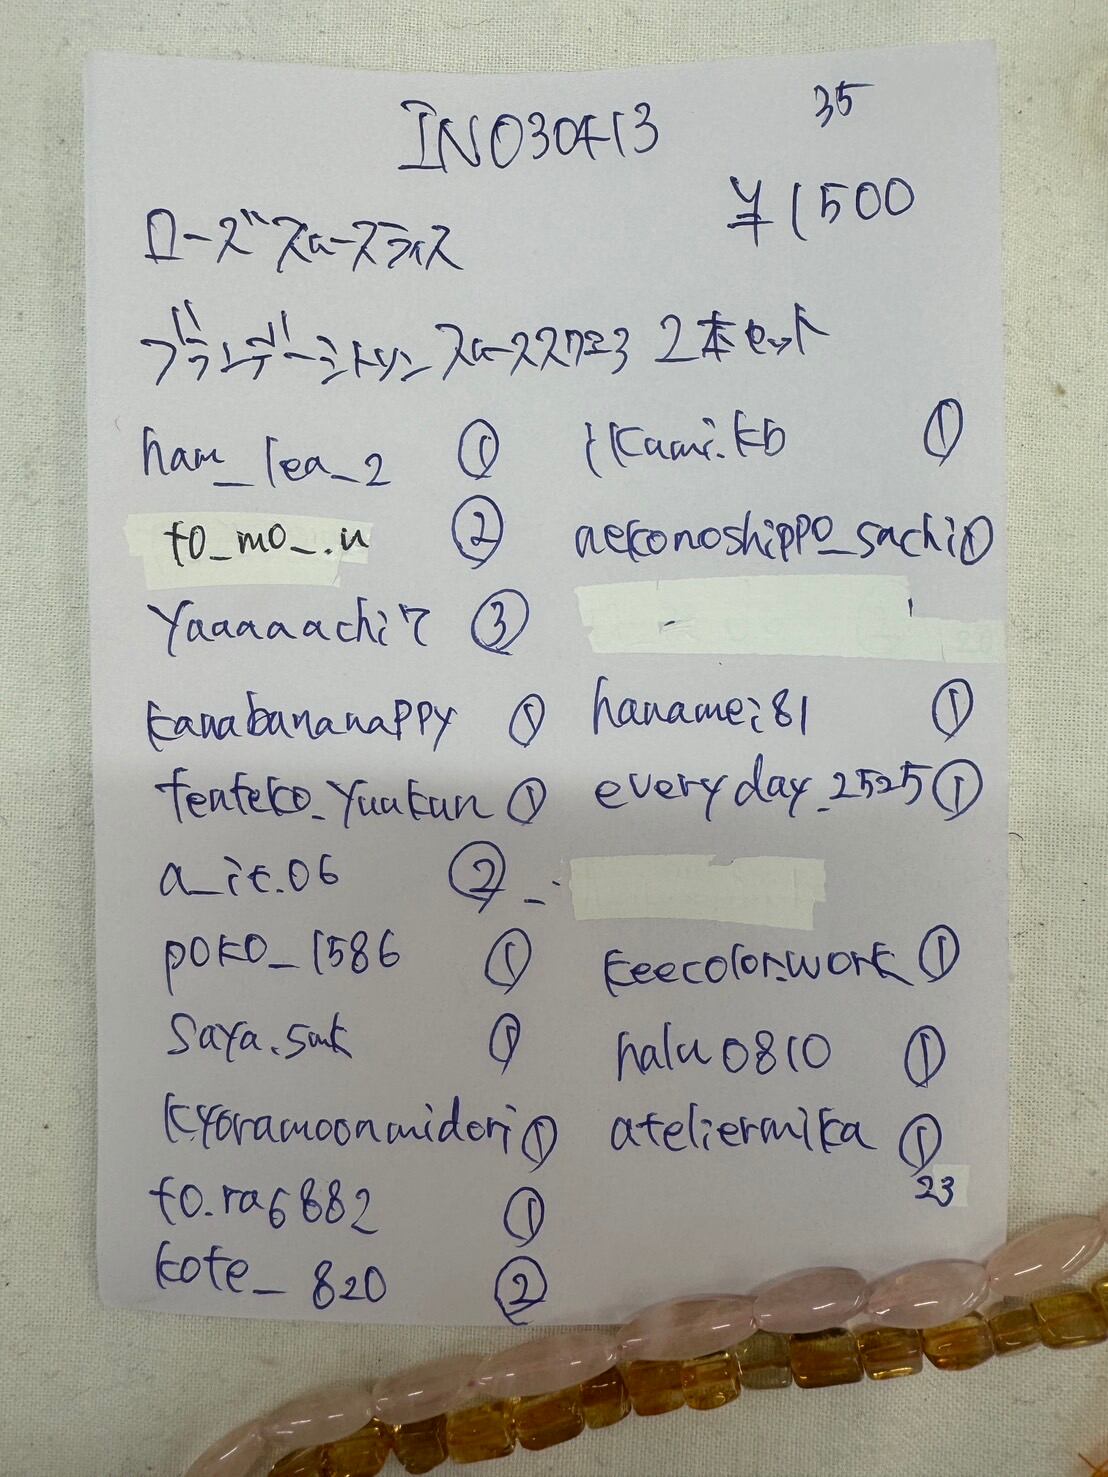 IN030413
35
¥1500
ローズスムースライス
ブランデーシトリンスムーススクエア 2本セット
ham_lea_2 ①
to_mo_.n ②
yaaaaachi7 ③
kanabananappy ①
tenteko_yuukun ①
a_ic.06 ②
poko_1586 ①
saya.smk ①
kyoramoonmidori ①
to.ra6882 ①
kote_820 ②
ikumi.kb ①
nekonoshippo_sachi ①
hanamei81 ①
everyday_2525 ①
keecolor.work ①
halu0810 ①
ateliermika ①
23